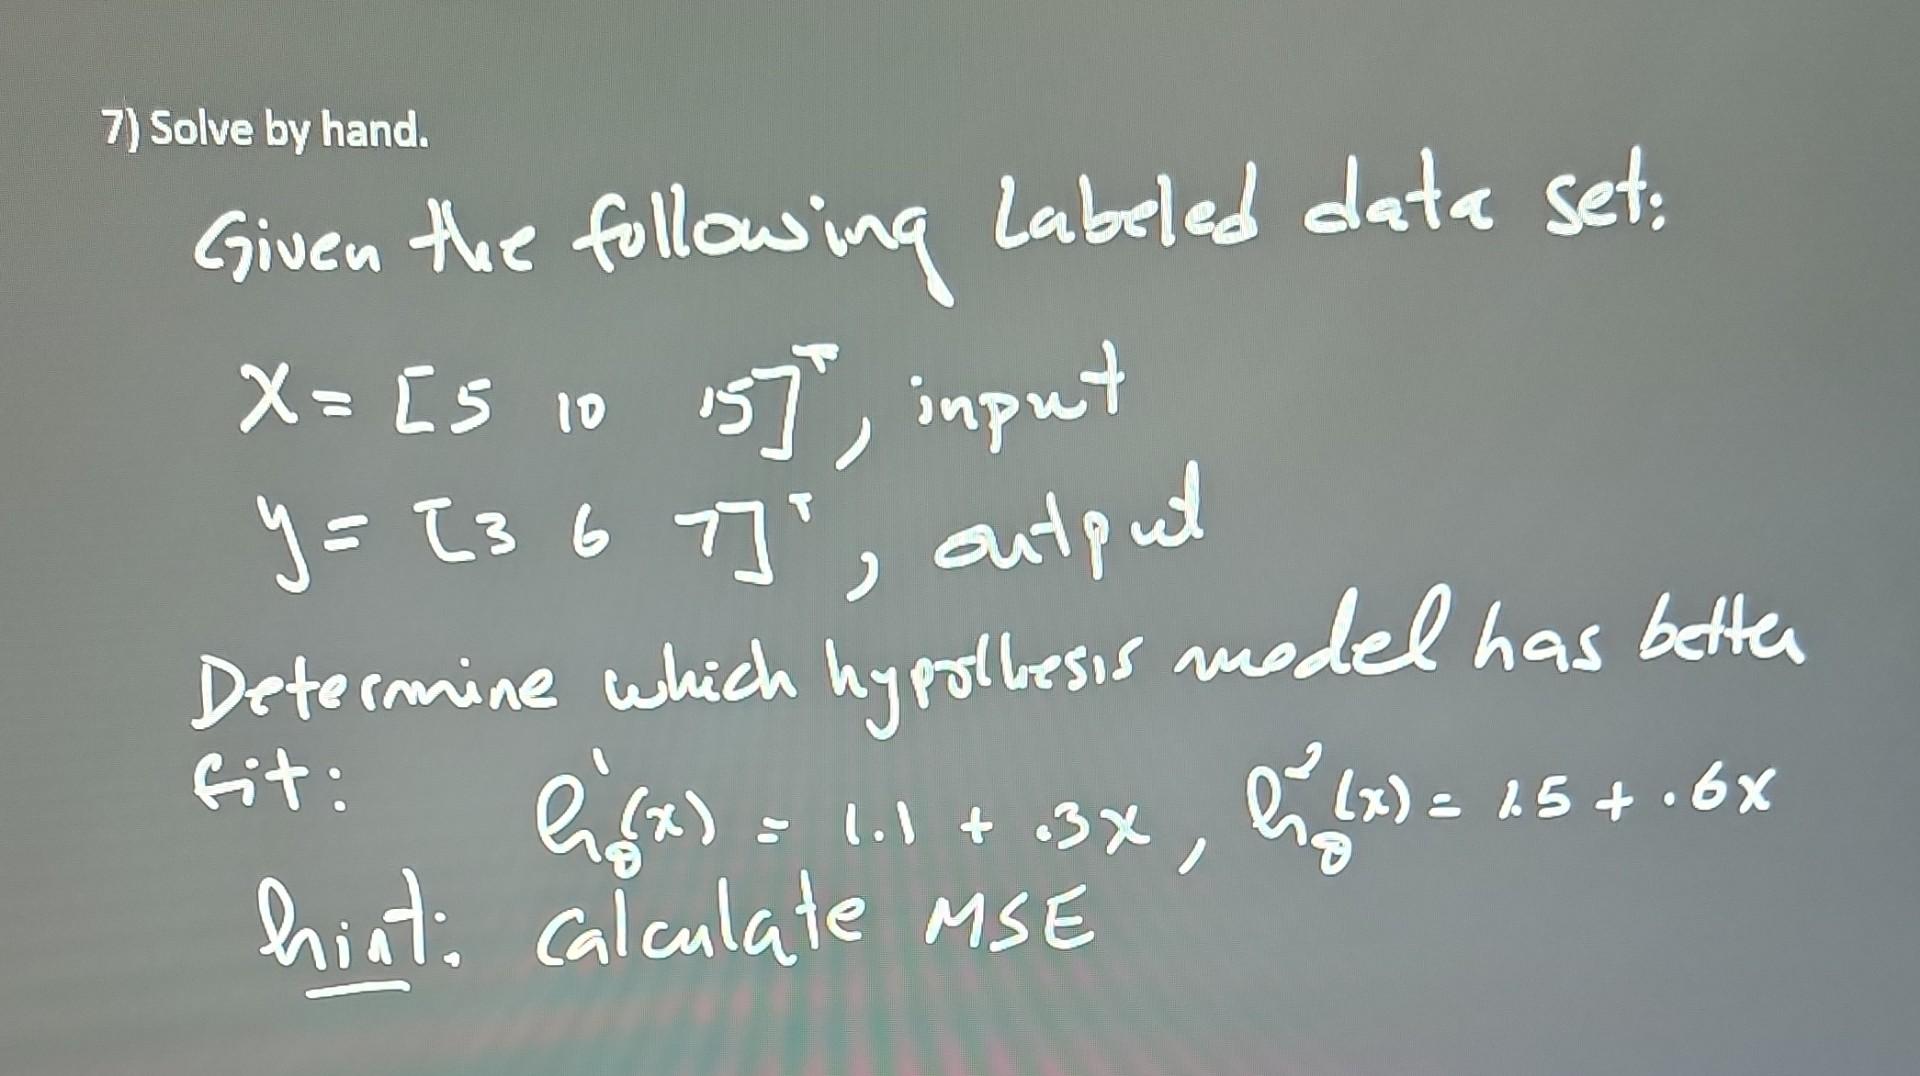 7) Solve by hand.
Given the following Labeled data set:
X = [5 10 15]ᵀ, input
y = [3 6 7]ᵀ, output
Determine which hypothesis model has better
fit: h¹_θ(x) = 1.1 + .3x, h²_θ(x) = 1.5 + .6x
hint: calculate MSE